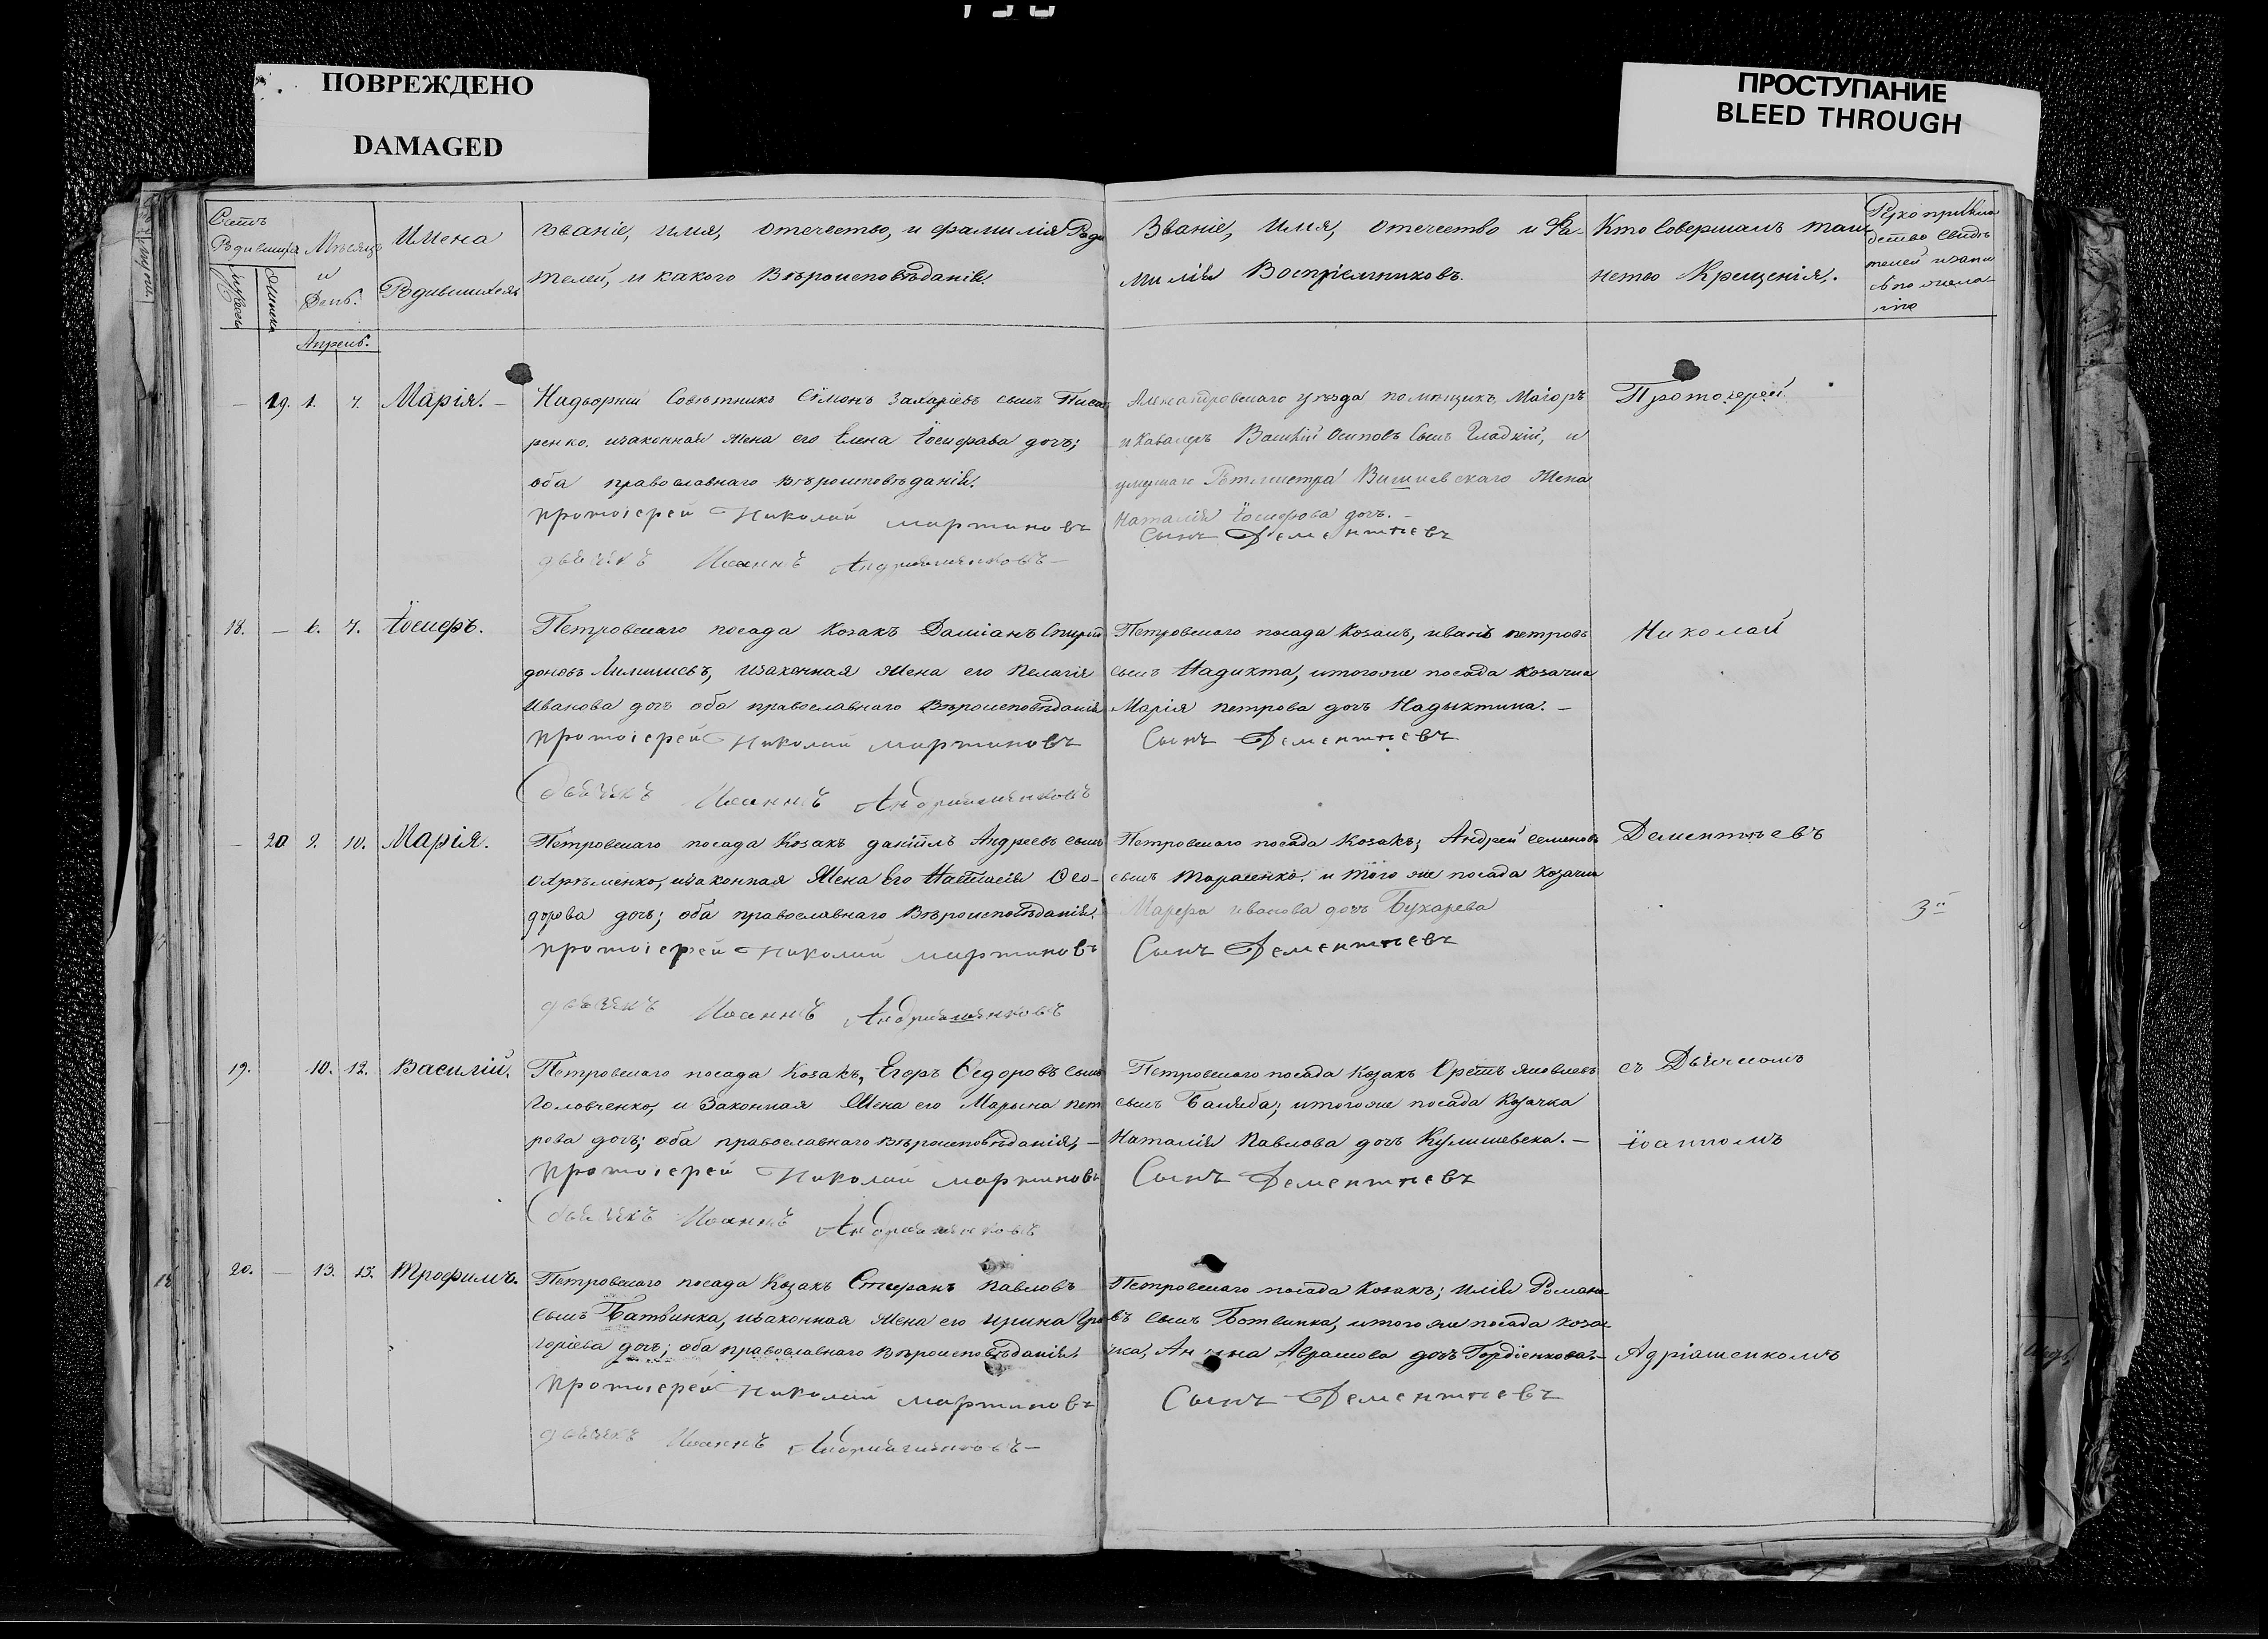 ПОВРЕЖДЕНО
DAMAGED
ПРОСТУПАНИЕ
BLEED THROUGH
Счетъ
Родившихся
Мѣсяцъ
и
День.
Имена
Родившихся
Званіе, имя, отечество, и фамилія Роди
телей, и какого Вѣроисповѣданія.
Званіе, Имя, Отечество и Фа-
милія Воспріемниковъ.
Кто Совершалъ таин
нство Крещенія.
Апрель.
— 19. 1. 7. Марія. —
Надворній Совѣтникъ Сѵмонъ Захаріевъ сынъ Писа
ренко, изаконная жена его Елена Іосифава дочь;
оба православнаго вѣроисповѣданія.
протоіерей Николай мартиновъ
дьячекъ Иоаннъ
уѣзда помѣщикъ, Маіоръ
и Кавалеръ Василій Осиповъ Сынъ Гладкій, и
Ротмистра Вишневскаго Жена
Наталія Іосифова дочь. —
Сынъ Дементьевъ
Протоіерей
18. — 6. 7. Іосифъ.
Петровскаго посада козакъ Даміанъ Спири
доновъ изаконная жена его Пелагія
Иванова дочь оба православнаго Вѣроисповѣданія
протоіерей Николай мартиновъ
дьячекъ Иоаннъ
Петровскаго посада Козакъ, иванъ петровъ
сынъ Надикта, итогоже посада козачка
Марія петрова дочь Надыктина. —
Сынъ Дементьевъ
Николай
— 20 9. 10. Марія.
Петровскаго посада Козакъ даніилъ Андреевъ сынъ
Охрѣменко, изаконная Жена Его Наталія Ѳео-
дорова дочь; оба православнаго Вѣроисповѣданія.
протоіерей Николай мартиновъ
дьячекъ Иоаннъ
Петровскаго посада Козакъ; Андрей семеновъ
сынъ Тарасенко. и того же посада Козачка
Марфа иванова дочь Бухарева
Сынъ Дементьевъ
Дементьевъ
19. 10. 12. Василій.
Петровскаго посада Козакъ, Егоръ Ѳедоровъ сынъ
Головченко, и Законная Жена его Марына пет
рова дочь; оба православнаго вѣроисповѣданія, —
протоіерей Николай мартиновъ
дьячекъ Иоаннъ
Петровскаго посада Козакъ Орестъ яковлевъ
сынъ итогоже посада Козачка
Наталія Павлова дочь —
Сынъ Дементьевъ
съ Дьячкомъ
Іоанномъ
20. — 13. 15. Трофимъ.
Петровскаго посада Козакъ Стефанъ Павловъ
сынъ Батвинка, изаконная жена его ирина Гри
горіева дочь; оба православнаго вѣроисповѣданія.
протоіерей Николай мартиновъ
дьячекъ Иоаннъ
Петровскаго посада Козакъ; илія Романо
въ сынъ Ботвинка, итого же посада коза
чка, Анна Аврамова дочь Гордіенкова. —
Сынъ Дементьевъ
Адріашенкомъ